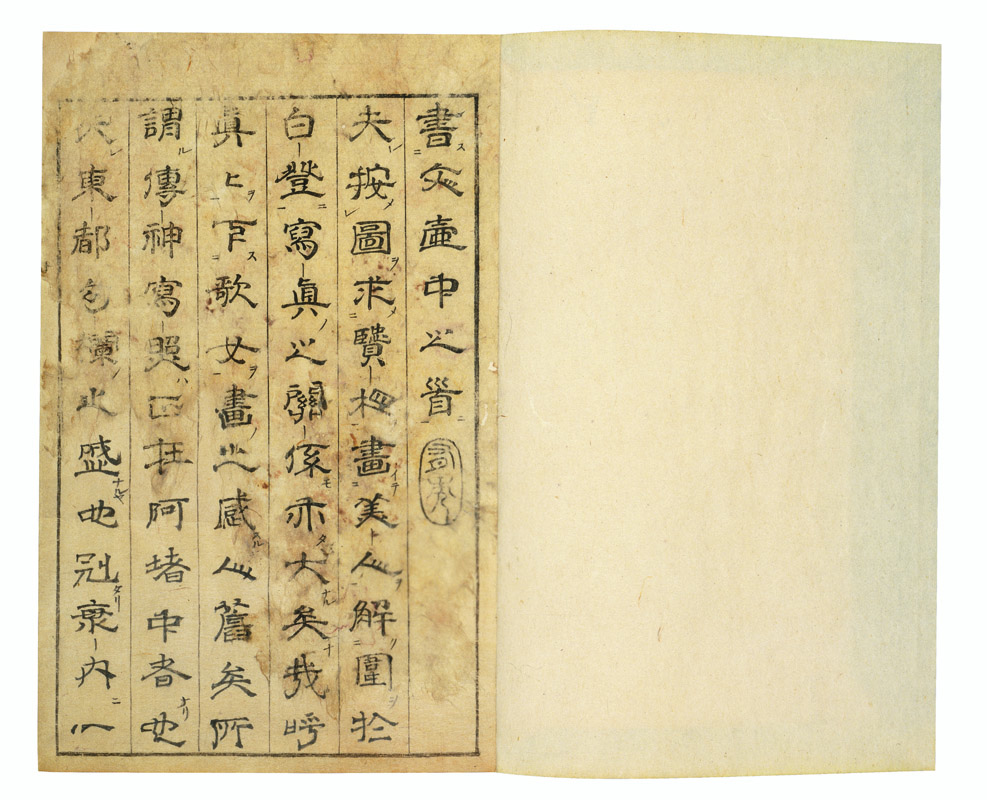 書壷中之首
夫按圖求賢畫美人解圍於
白登寫眞之關係亦大矣哉呼
眞上下歌女畫之感人舊矣所
謂傳神寫照正在阿堵中者也
夫東都之盛也冠寰内以